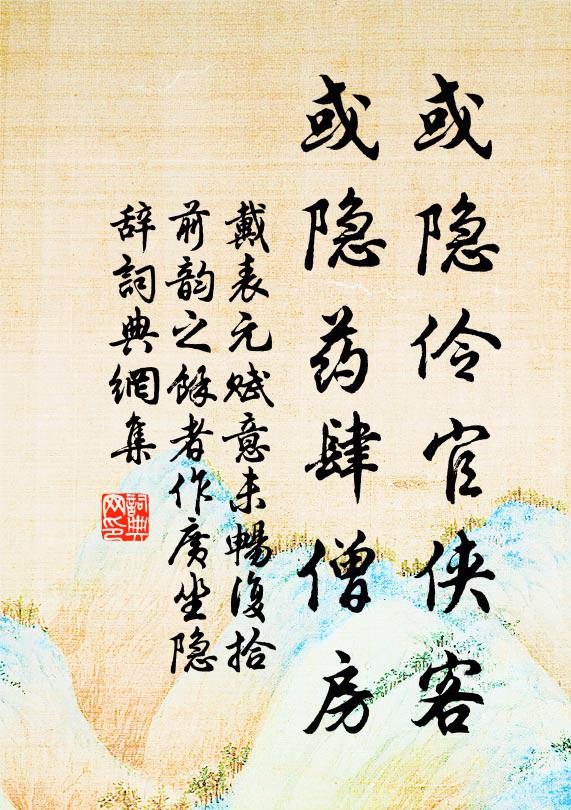 或隐伶官侠客
或隐药肆僧房
戴表元赋意未畅復拾
前韵之馀者作广坐隐
辞詞典網集
詞典
网印